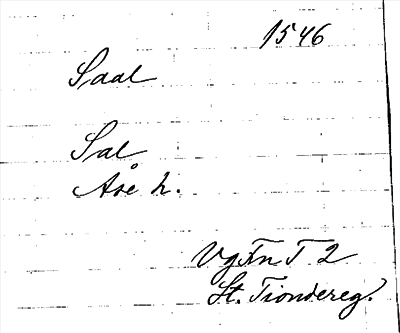 1546
Saal
Sal
Åse h.
Vg Fn T 2
St. Tiondereg.